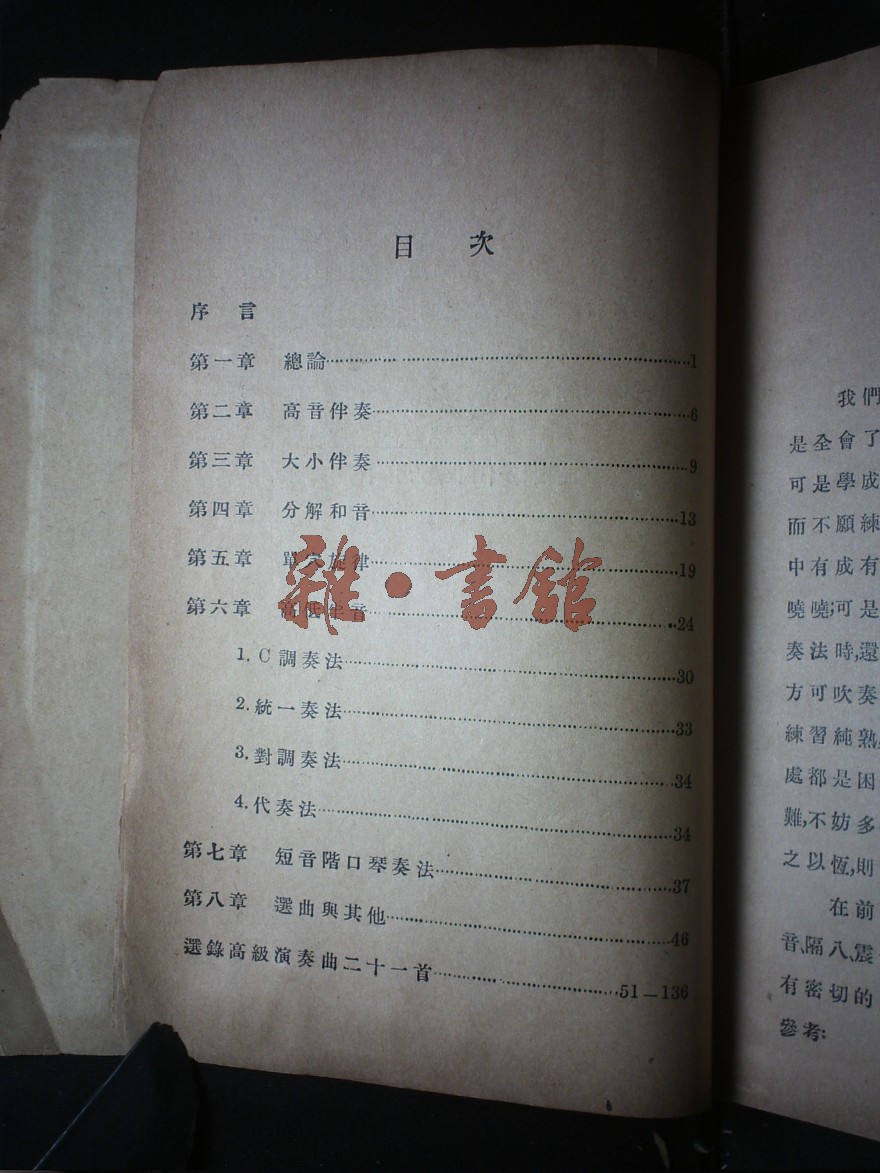 目 次
序 言
第一章 總論…………1
第二章 高音伴奏…………6
第三章 大小伴奏…………9
第四章 分解和音…………13
第五章 單 旋律…………19
第六章 高低半音…………24
1. C調奏法…………30
2. 統一奏法…………33
3. 對調奏法…………34
4. 代奏法…………34
第七章 短音階口琴奏法…………37
第八章 選曲與其他…………46
選錄高級演奏曲二十一首…………51—136
雜·書館
我們
是全會了
可是學成
而不願練
中有成有
嘵嘵;可是
奏法時,還
方可吹奏
練習純熟,
處都是困
難,不妨多
之以恆,則
在前
音、隔八、震
有密切的
參考: